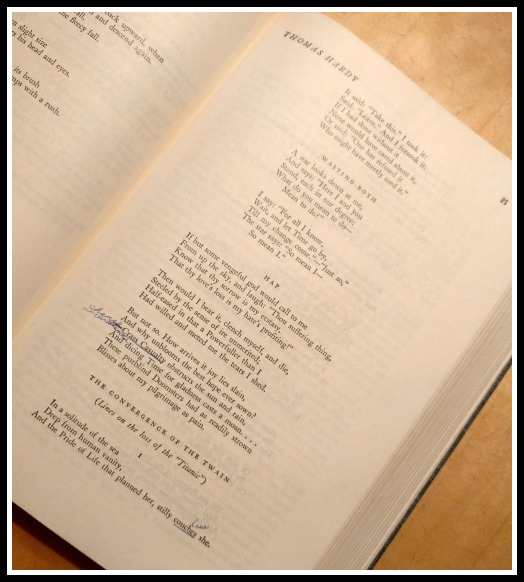 back upward, when
and descend again.
the fleecy fall.
n slight size
s his head and eyes.
its brush
mps with a rush.
THOMAS HARDY
It said: "Take this," I took it:
Said: "Leave." And I forsook it:
If I had done without it
None would have cared about it,
Or said: "One has refused it
Who might have meetly used it."
WAITING BOTH
A star looks down at me,
And says: "Here I and you
Stand, each in our degree:
What do you mean to do—
Mean to do?"
I say: "For all I know,
Wait, and let Time go by,
Till my change come."—"Just so,"
The star says: "So mean I—
So mean I."
HAP
If but some vengeful god would call to me
From up the sky, and laugh: "Thou suffering thing,
Know that thy sorrow is my ecstasy,
That thy love's loss is my hate's profiting!"
Then would I bear it, clench myself, and die,
Steeled by the sense of ire unmerited;
Half-eased in that a Powerfuller than I
Had willed and meted me the tears I shed.
But not so. How arrives it joy lies slain,
And why unblooms the best hope ever sown?
—Crass Casualty obstructs the sun and rain,
And dicing Time for gladness casts a moan. . . .
These purblind Doomsters had as readily strown
Blisses about my pilgrimage as pain.
THE CONVERGENCE OF THE TWAIN
(Lines on the loss of the "Titanic")
I
In a solitude of the sea
Deep from human vanity,
And the Pride of Life that planned her, stilly couches she.
lies